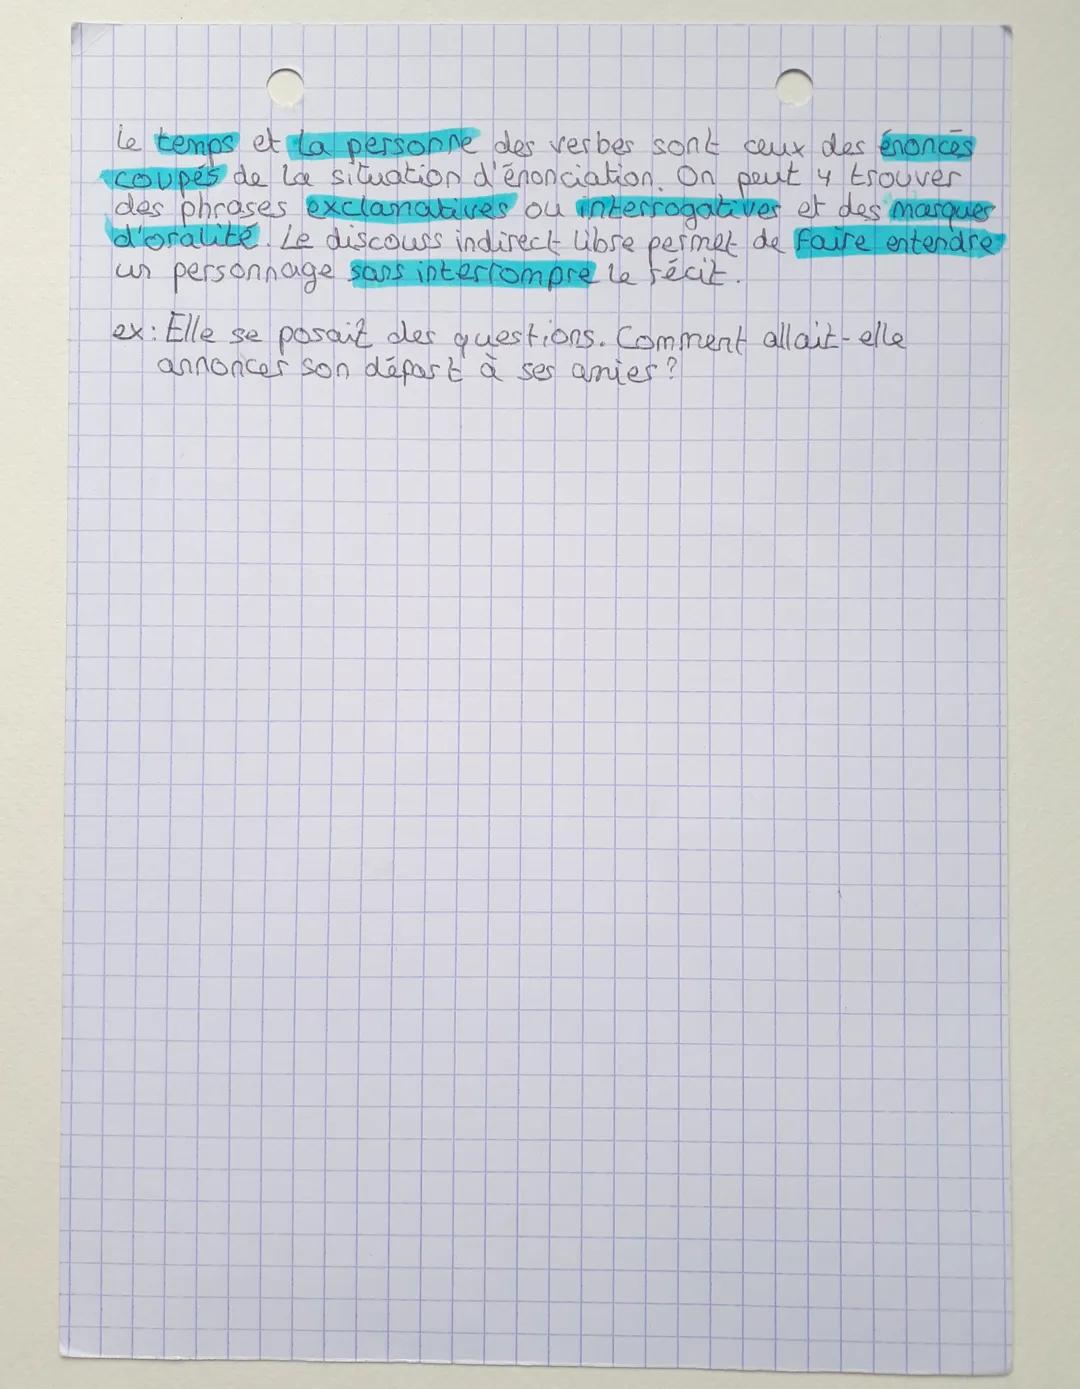 Le temps et la personne des verbes sont ceux des énoncés
coupés de la situation d'énonciation. On peut y trouver
des phrases exclamatives ou interrogatives et des marques
d'oralité. Le discours indirect libre permet de faire entendre
un personnage sans interrompre le récit.
ex: Elle se posait des questions. Comment allait-elle
annoncer son départ à ses amies ?